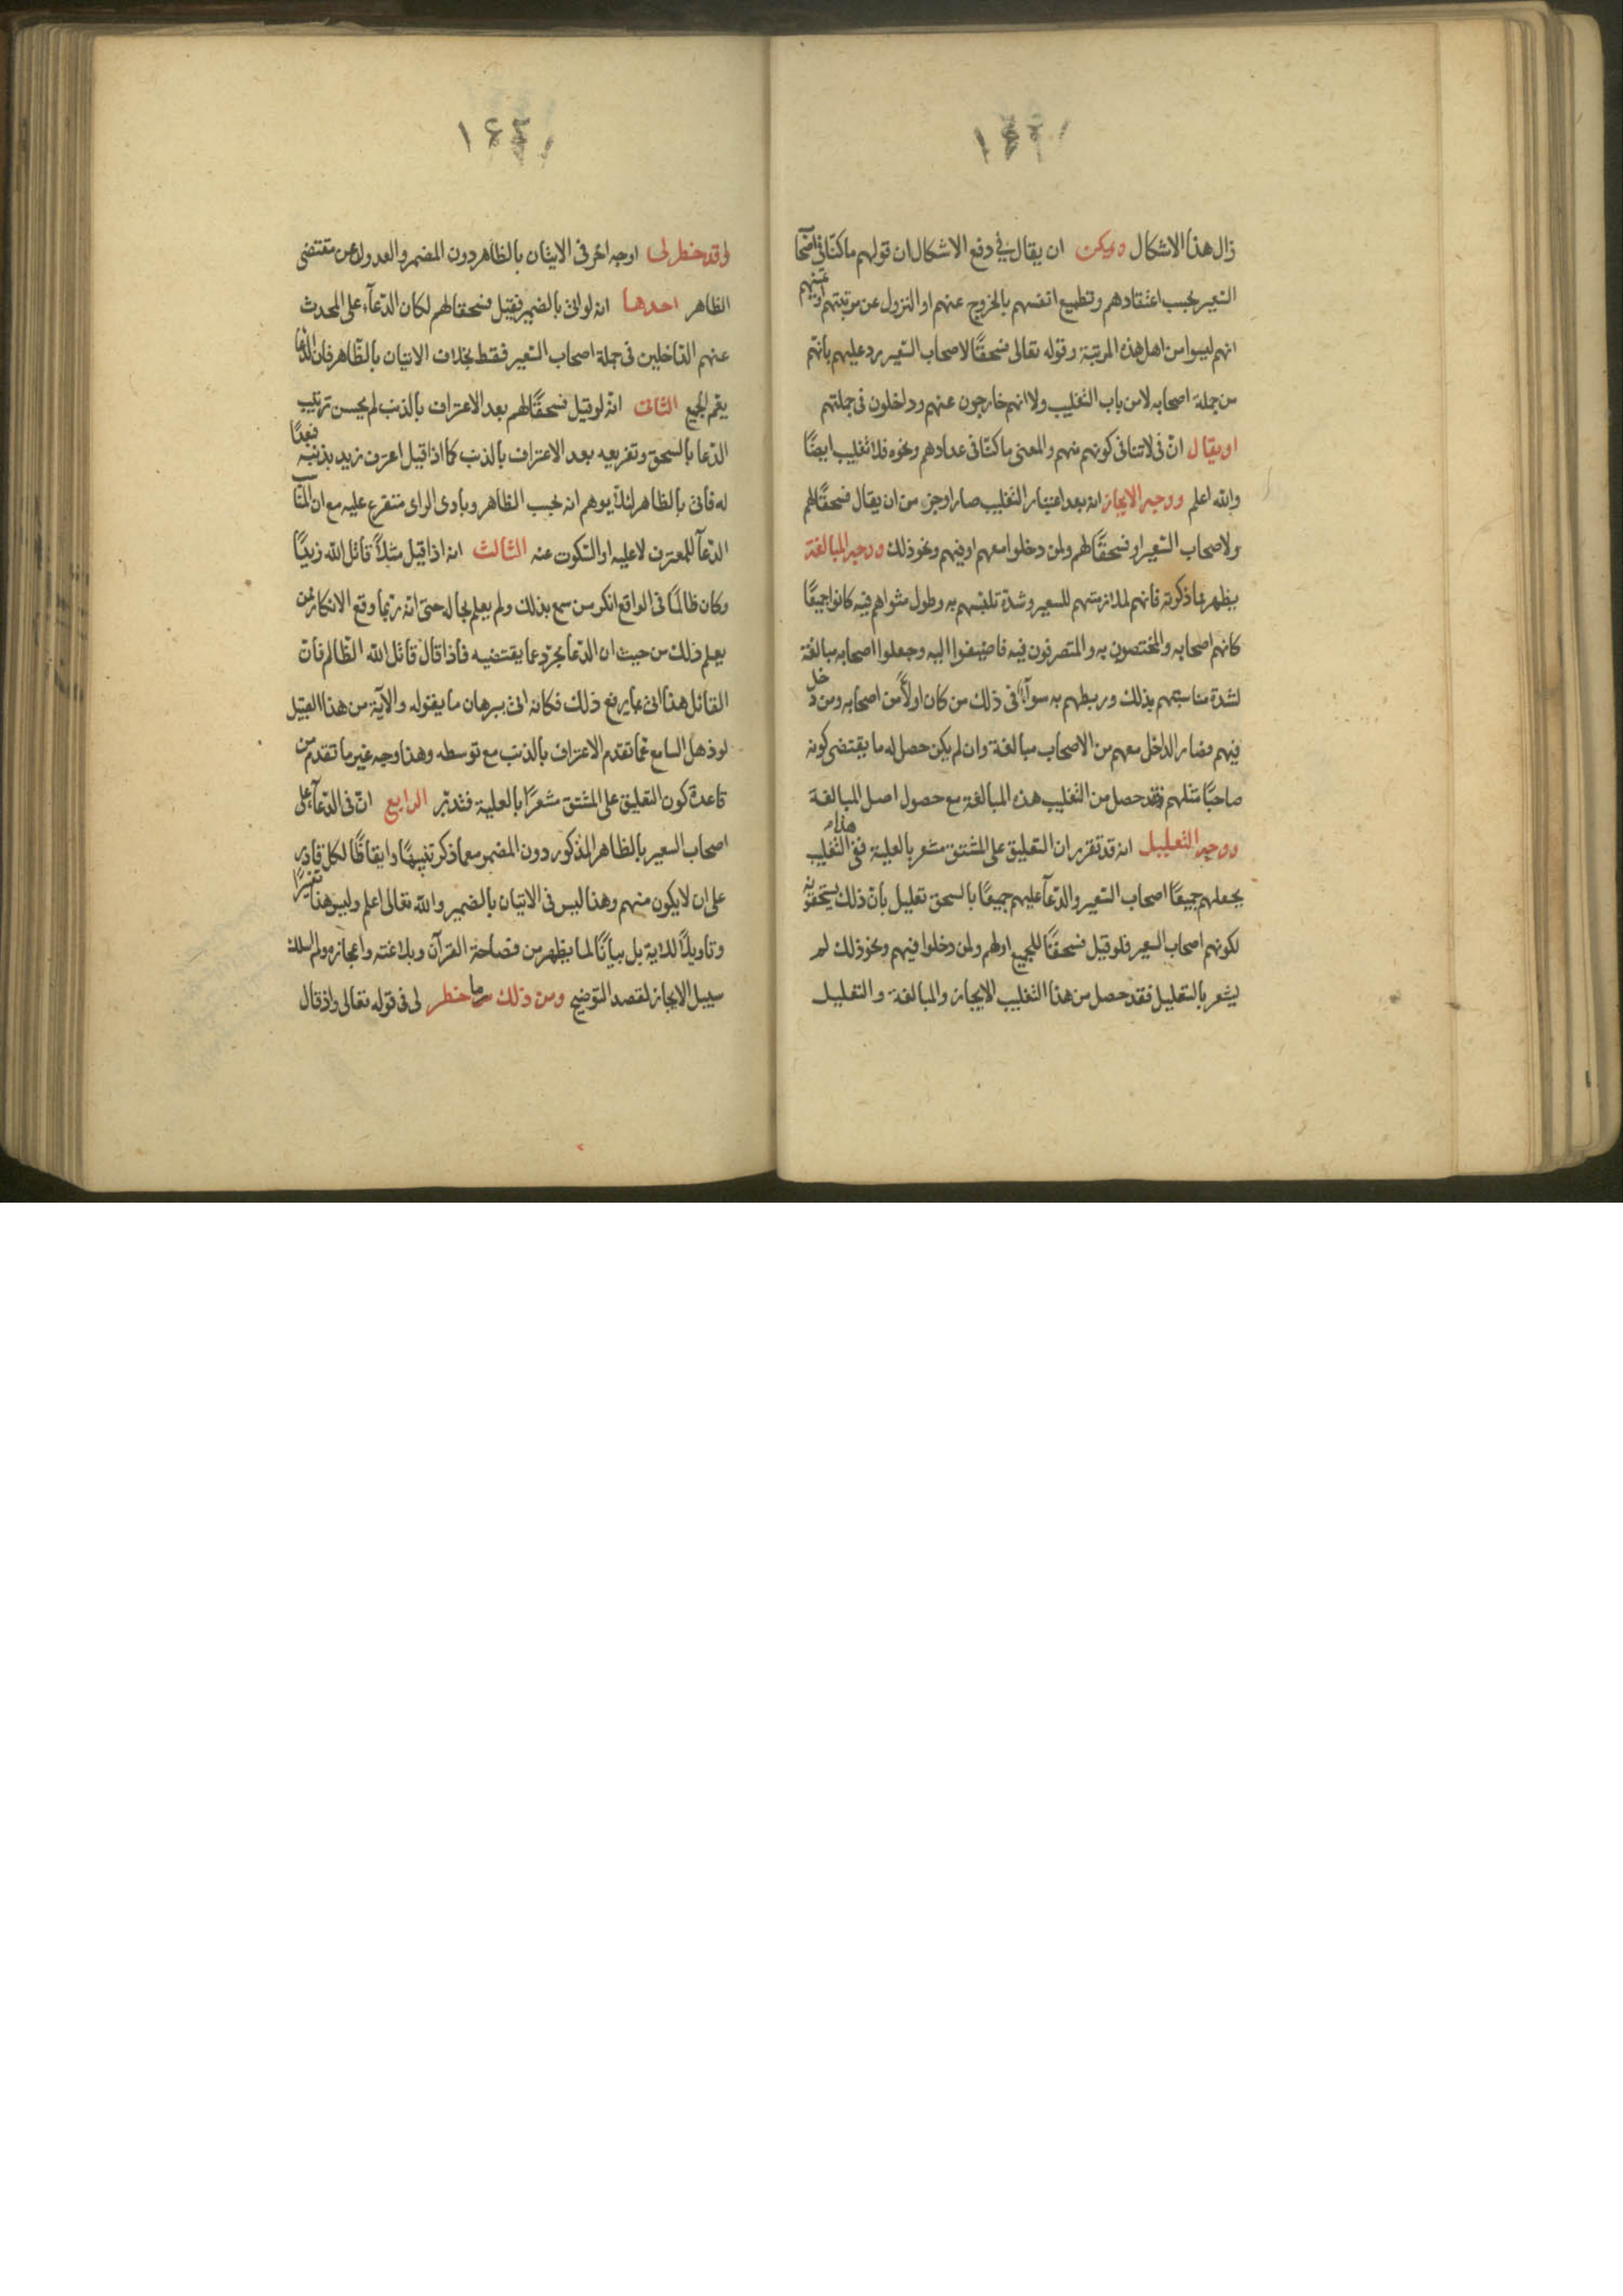 زال هذا الاشكال ويمكن ان يقال في دفع الاشكال ان قولهم ما كنّا في اصحاب
السّعير بحسب اعتقادهم وتطميع انفسهم بالخروج عنهم او النزول عن مرتبتهم
انهم ليسوا من اهل هذه المرتبة وقوله تعالى فسحقًا لاصحاب السّعير رد عليهم بانهم
من جملة اصحابه لا من باب التغليب ولا انهم خارجون عنهم وداخلون في جملتهم
او يقال انّ في لا تنافي كونهم منهم والمعنى ما كنّا في عدادهم ونحوه فلا تغليب ايضًا
والله اعلم ووجه الايجاز انه بعد اعتبار التغليب صار اوجز من ان يقال فسحقًا لهم
ولاصحاب السّعير او فسحقًا لهم ولمن دخلوا معهم او فيهم ونحو ذلك ووجه المبالغة
يظهر مما ذكرته فانهم لملازمتهم للسعير وشدة تلبّسهم به وطول مثواهم فيه كانوا جميعًا
كانهم اصحابه والمختصون به والمتصرفون فيه فاضيفوا اليه وجعلوا اصحابه مبالغة
لشدة مناسبتهم بذلك وربطهم به سوآء في ذلك من كان اولاً من اصحابه ومن دخل
فيهم فصار الداخل معهم من الاصحاب مبالغة وان لم يكن حصل له ما يقتضى كونه
صاحبًا مثلهم فقد حصل من التغليب هذه المبالغة مع حصول اصل المبالغة
ووجه التعليل انه قد تقرر ان التعليق على المشتق مشعر بالعلية ففي هذا التغليب
بجعلهم جميعًا اصحاب السّعير والدّعآء عليهم جميعًا بالسحق تعليل بانّ ذلك يستحقونه
لكونهم اصحاب السعير فلو قيل فسحقًا للجميع او لهم ولمن دخلوا فيهم ونحو ذلك لم
يشعر بالتعليل فقد حصل من هذا التغليب الايجاز والمبالغة والتعليل
وقد خطر لى اوجه اخر في الاتيان بالظاهر دون المضمر والعدول عن مقتضى
الظاهر احدها انه لو اتى بالضمير فقيل فسحقا لهم لكان الدّعآء على المحدث
عنهم الدّاخلين في جملة اصحاب السّعير فقط بخلاف الاتيان بالظّاهر فان الدّعا
يعم الجميع الثانى انّه لو قيل فسحقًا لهم بعد الاعتراف بالذنب لم يحسن ترتيب
الدّعا بالسحق وتفريعه بعد الاعتراف بالذنب كما اذا قيل اعترف زيد بذنبه فبعدًا
له فاتى بالظاهر لئلا يوهم انه بحسب الظاهر وبادى الراى متفرع عليه مع ان المناسب
الدّعآء للمعترف لا عليه او السّكوت عنه الثالث انه اذا قيل مثلاً قاتل الله زيدًا
وكان ظالمًا في الواقع انكر من سمع بذلك ولم يعلم بحاله حتى انّه ربّما وقع الانكار ممن
يعلم ذلك من حيث ان الدّعا مجرّد عما يقتضيه فاذا قال قاتل الله الظّالم فانّ
القائل هنا اتى بما يرفع ذلك فكانه اتى ببرهان ما يقوله والآية من هذا القبيل
لو ذهل السامع عمّا تقدم الاعتراف بالذنب مع توسطه وهذا وجه غير ما تقدم من
قاعدة كون التعليق على المشتق مشعرًا بالعلية فتدبّر الرابع انّ في الدّعآء على
اصحاب السعير بالظاهر المذكور دون المضمر مع ما ذكر تنبيهًا وايقاظًا لكل قادر
على ان لا يكون منهم وهذا ليس في الاتيان بالضمير والله تعالى اعلم وليس هذا تفسيرًا
وتاويلاً للاية بل بيانًا لما يظهر من فصاحة القرآن وبلاغته واعجازه ولم اسلك
سبيل الايجاز لقصد التوضيح ومن ذلك ما خطر لى في قوله تعالى واذ قال